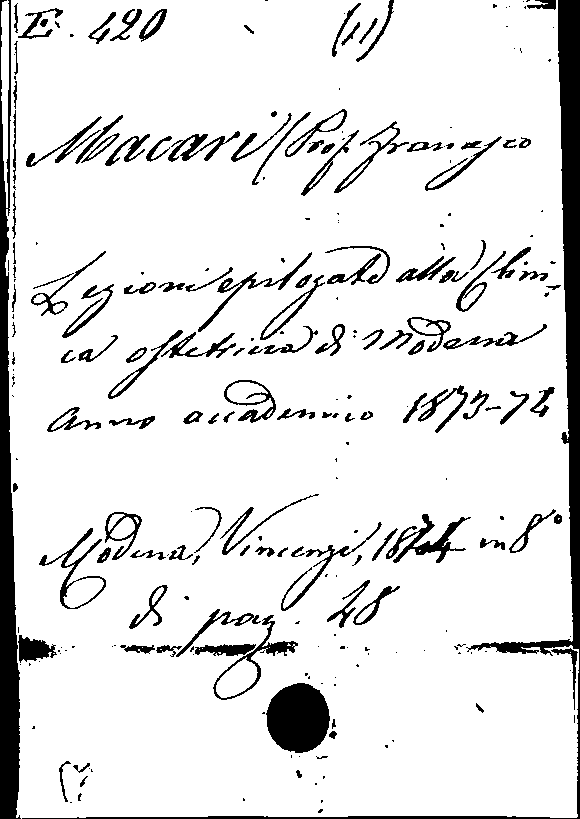 E. 420 (11)
Macari (Prof. Francesco
Lezioni epilogate alla Clini-
ca ostetricia di Modena
Anno accademico 1873-74
Modena, Vincenzi, 1874 in 8°
di pag. 48